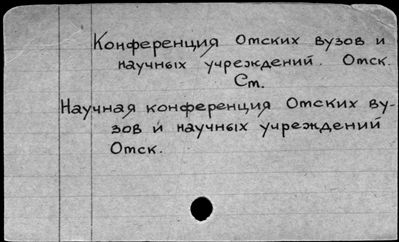 Конференция Омских вузов и
научных учреждений. Омск.
См.
Научная конференция Омских ву-
зов и научных учреждений
Омск.